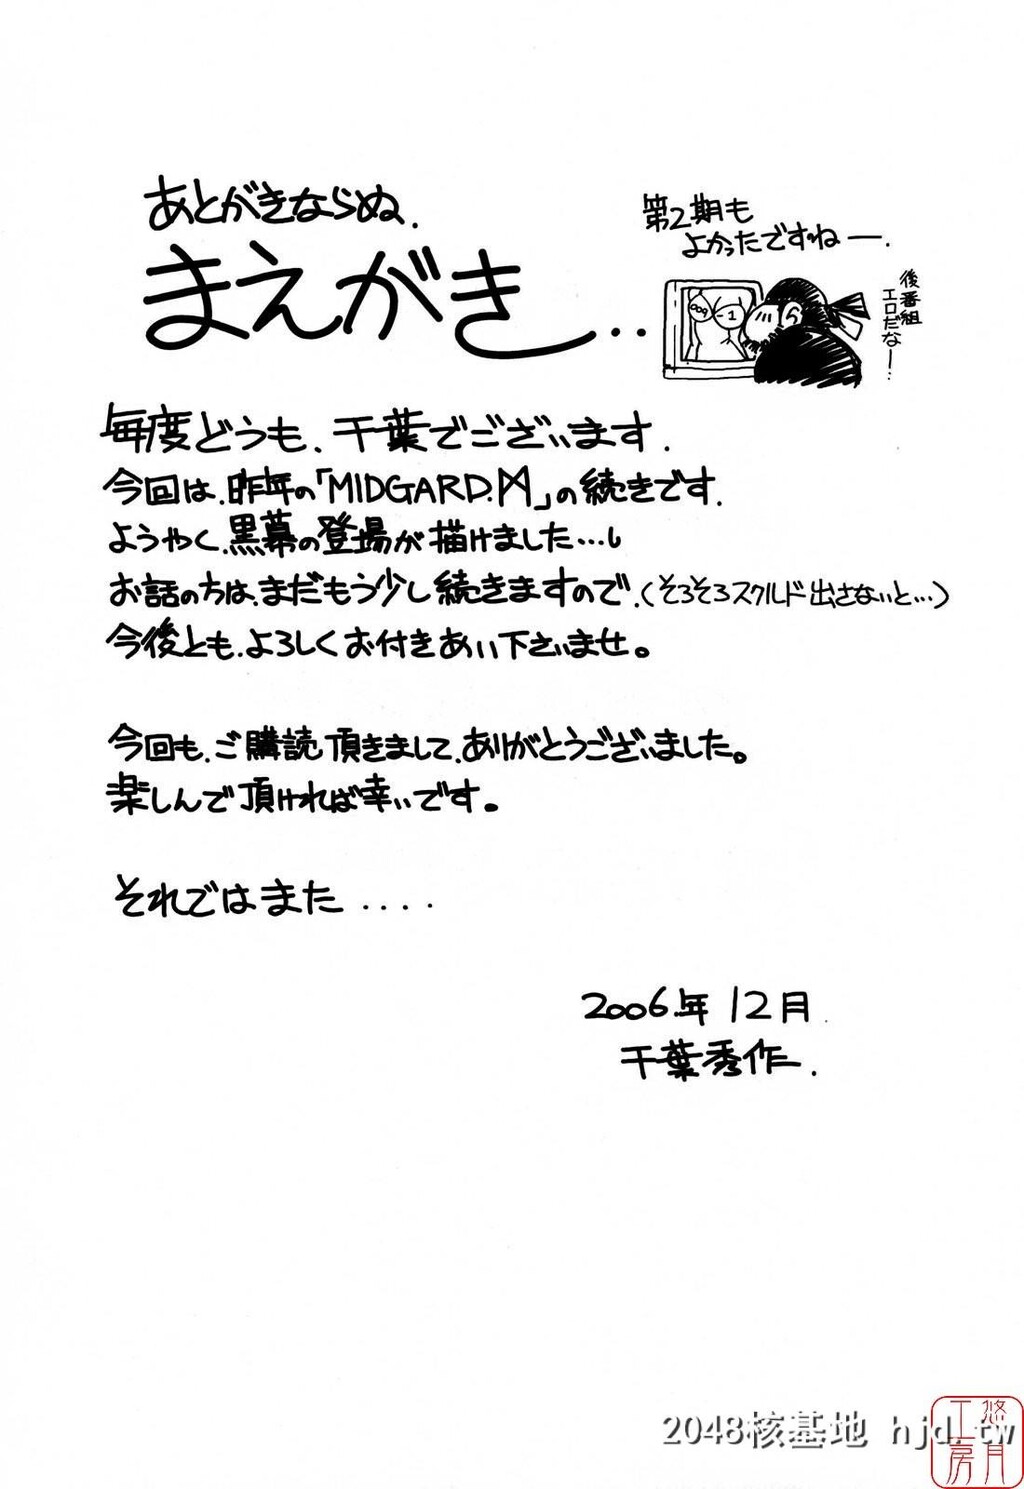 あとがきならぬ.
まえがき...
第2期も
よかったですねー.
後番組
エロだなー...
009
-1
毎度どうも、千葉でございます.
今回は、昨年の「MIDGARD.M」の続きです.
ようやく、黒幕の登場が描けました…
お話のちは、まだもう少し続きますので、(そろそろスクルド出さないと…)
今後とも、よろしくお付きあい下さいませ。
今回も、ご購読頂きまして、ありがとうございました。
楽しんで頂ければ幸いです。
それではまた....
2006年12月.
千葉秀作.
2048核基地 hjd.tw
悠月工房